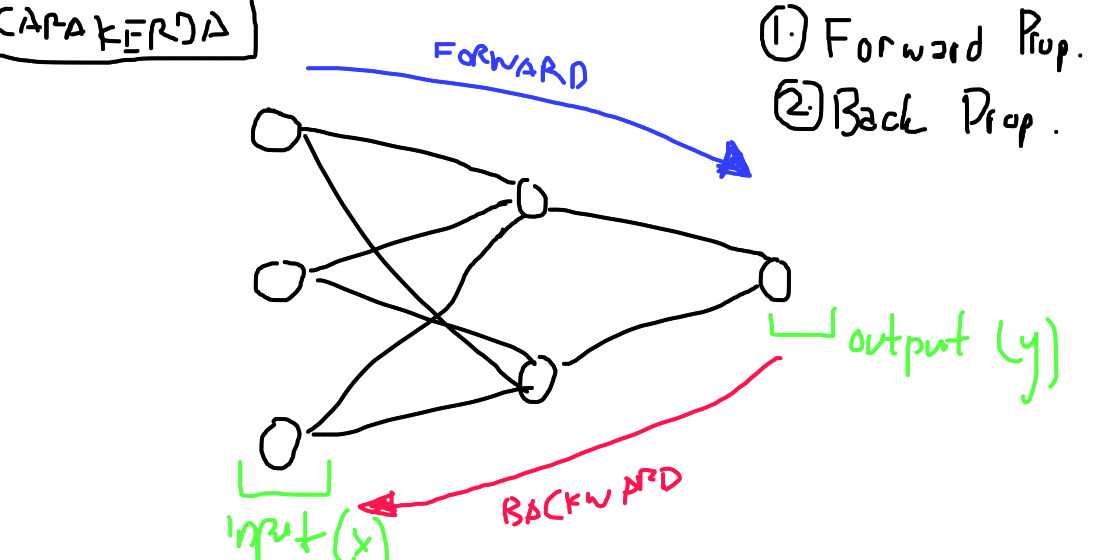 CARA KERDA
FORWARD
1. Forward Prop.
2. Back Prop.
output (y)
BACKWARD
input (x)